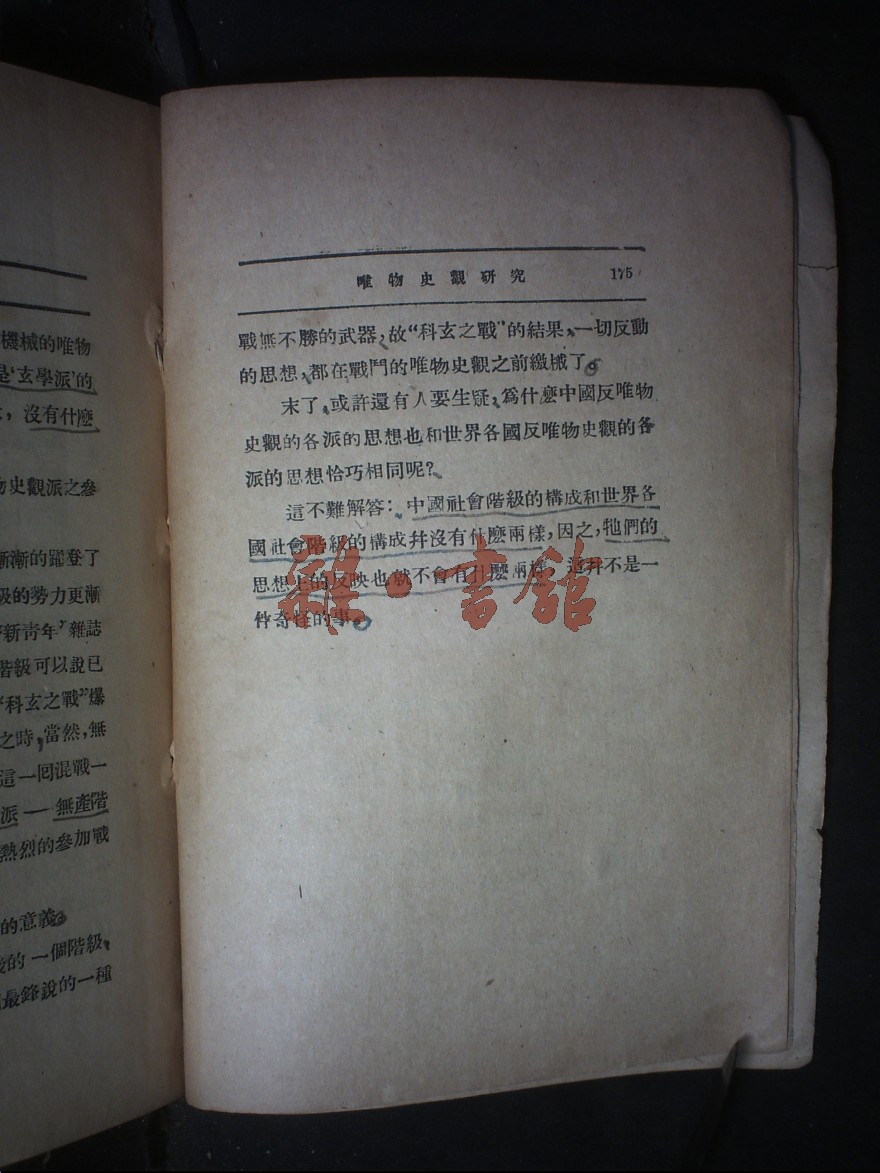 機械的唯物
是‘玄學派’的
，沒有什麽
物史觀派之參
漸漸的躍登了
級的勢力更漸
新青年’雜誌
階級可以說已
“科玄之戰”爆
之時，當然，無
這一囘混戰一
派 — 無產階
熱烈的參加戰
的意義。
的 一個階級，
最鋒銳的一種
唯物史觀研究 175
戰無不勝的武器，故“科玄之戰”的結果，一切反動
的思想，都在戰鬥的唯物史觀之前繳械了。
末了，或許還有人要生疑，爲什麽中國反唯物
史觀的各派的思想也和世界各國反唯物史觀的各
派的思想恰巧相同呢？
這不難解答：中國社會階級的構成和世界各
國社會階級的構成幷沒有什麽兩樣，因之，牠們的
思想上的反映也就不會有什麽兩樣。這幷不是一
件奇怪的事。
雜·書館